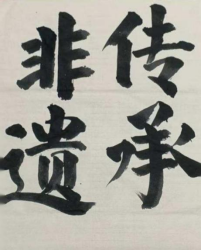 传承
非遗